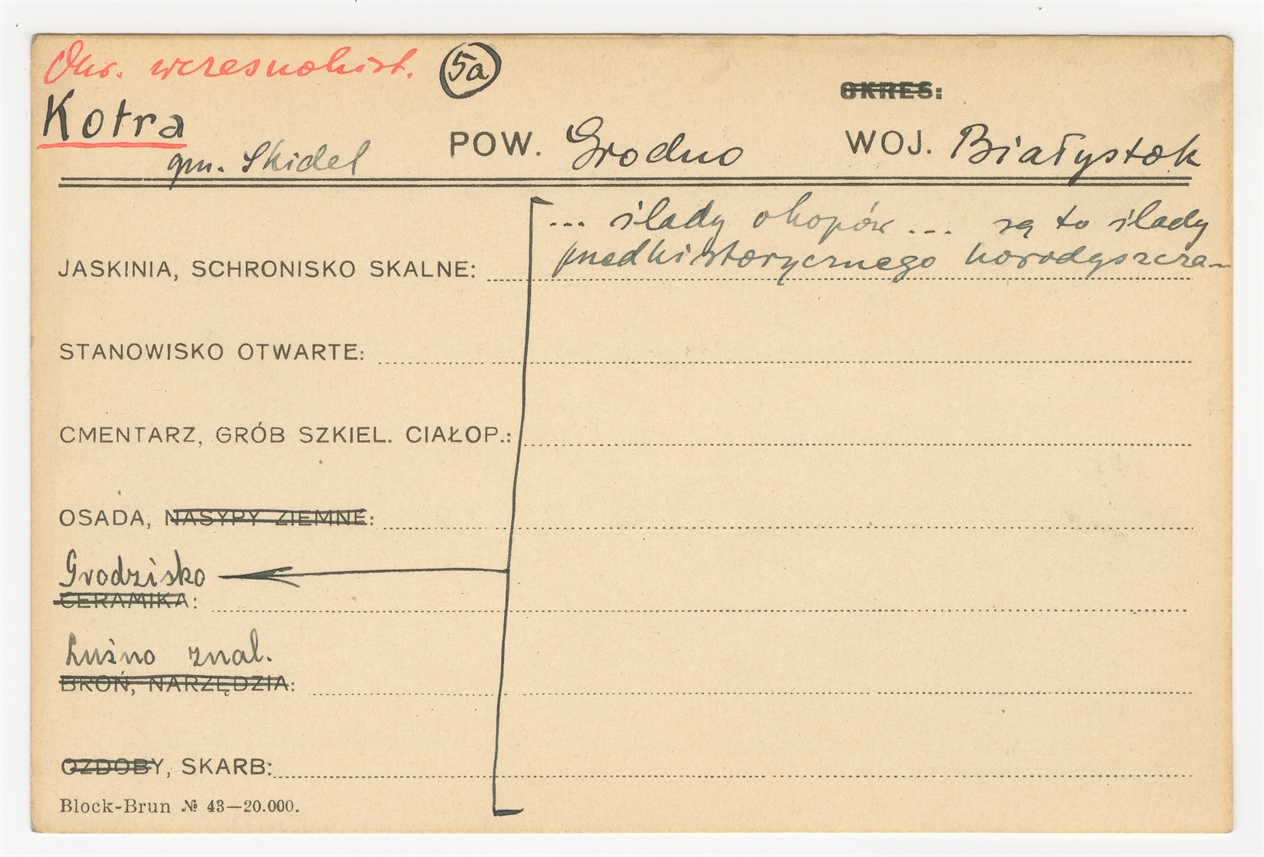 Okr. wczesnohist. 5a
OKRES:
Kotra
gm. Skidel
POW. Grodno WOJ. Białystok
... ślady okopów ... są to ślady
JASKINIA, SCHRONISKO SKALNE: przedhistorycznego horodyszcza–
STANOWISKO OTWARTE:
CMENTARZ, GRÓB SZKIEL. CIAŁOP.:
OSADA, NASYPY ZIEMNE:
Grodzisko
CERAMIKA:
Luźno znal.
BROŃ, NARZĘDZIA:
OZDOBY, SKARB:
Block-Brun № 43—20.000.